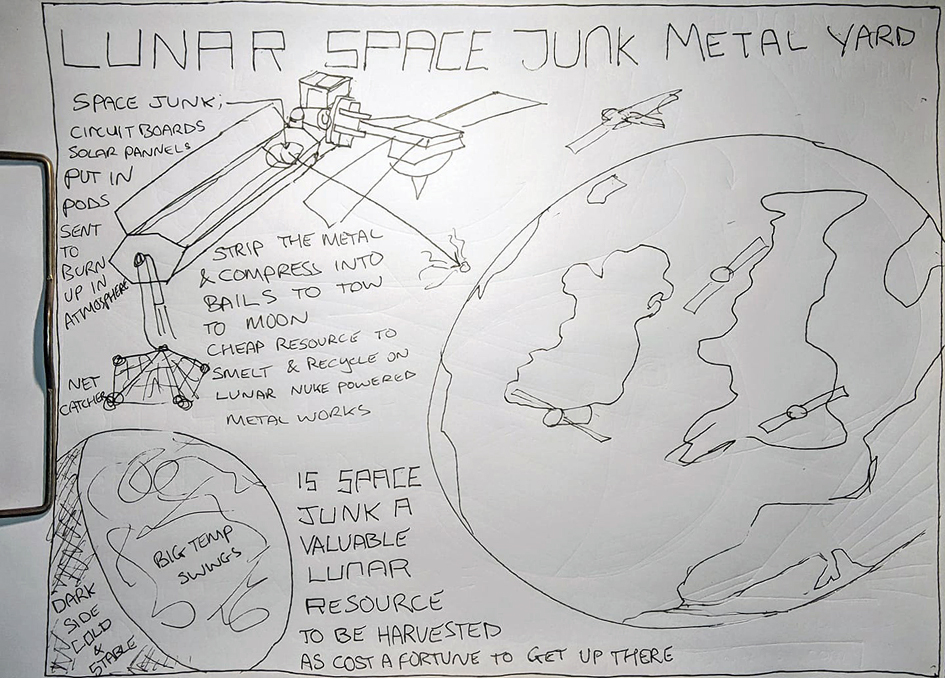 LUNAR SPACE JUNK METAL YARD
SPACE JUNK;
CIRCUIT BOARDS
SOLAR PANNELS
PUT IN
PODS
SENT
TO
BURN
UP IN
ATMOSPHERE
STRIP THE METAL
& COMPRESS INTO
BAILS TO TOW
TO MOON
CHEAP RESOURCE TO
SMELT & RECYCLE ON
LUNAR NUKE POWERED
METAL WORKS
NET
CATCHER
BIG TEMP
SWINGS
DARK
SIDE
COLD
&
STABLE
IS SPACE
JUNK A
VALUABLE
LUNAR
RESOURCE
TO BE HARVESTED
AS COST A FORTUNE TO GET UP THERE